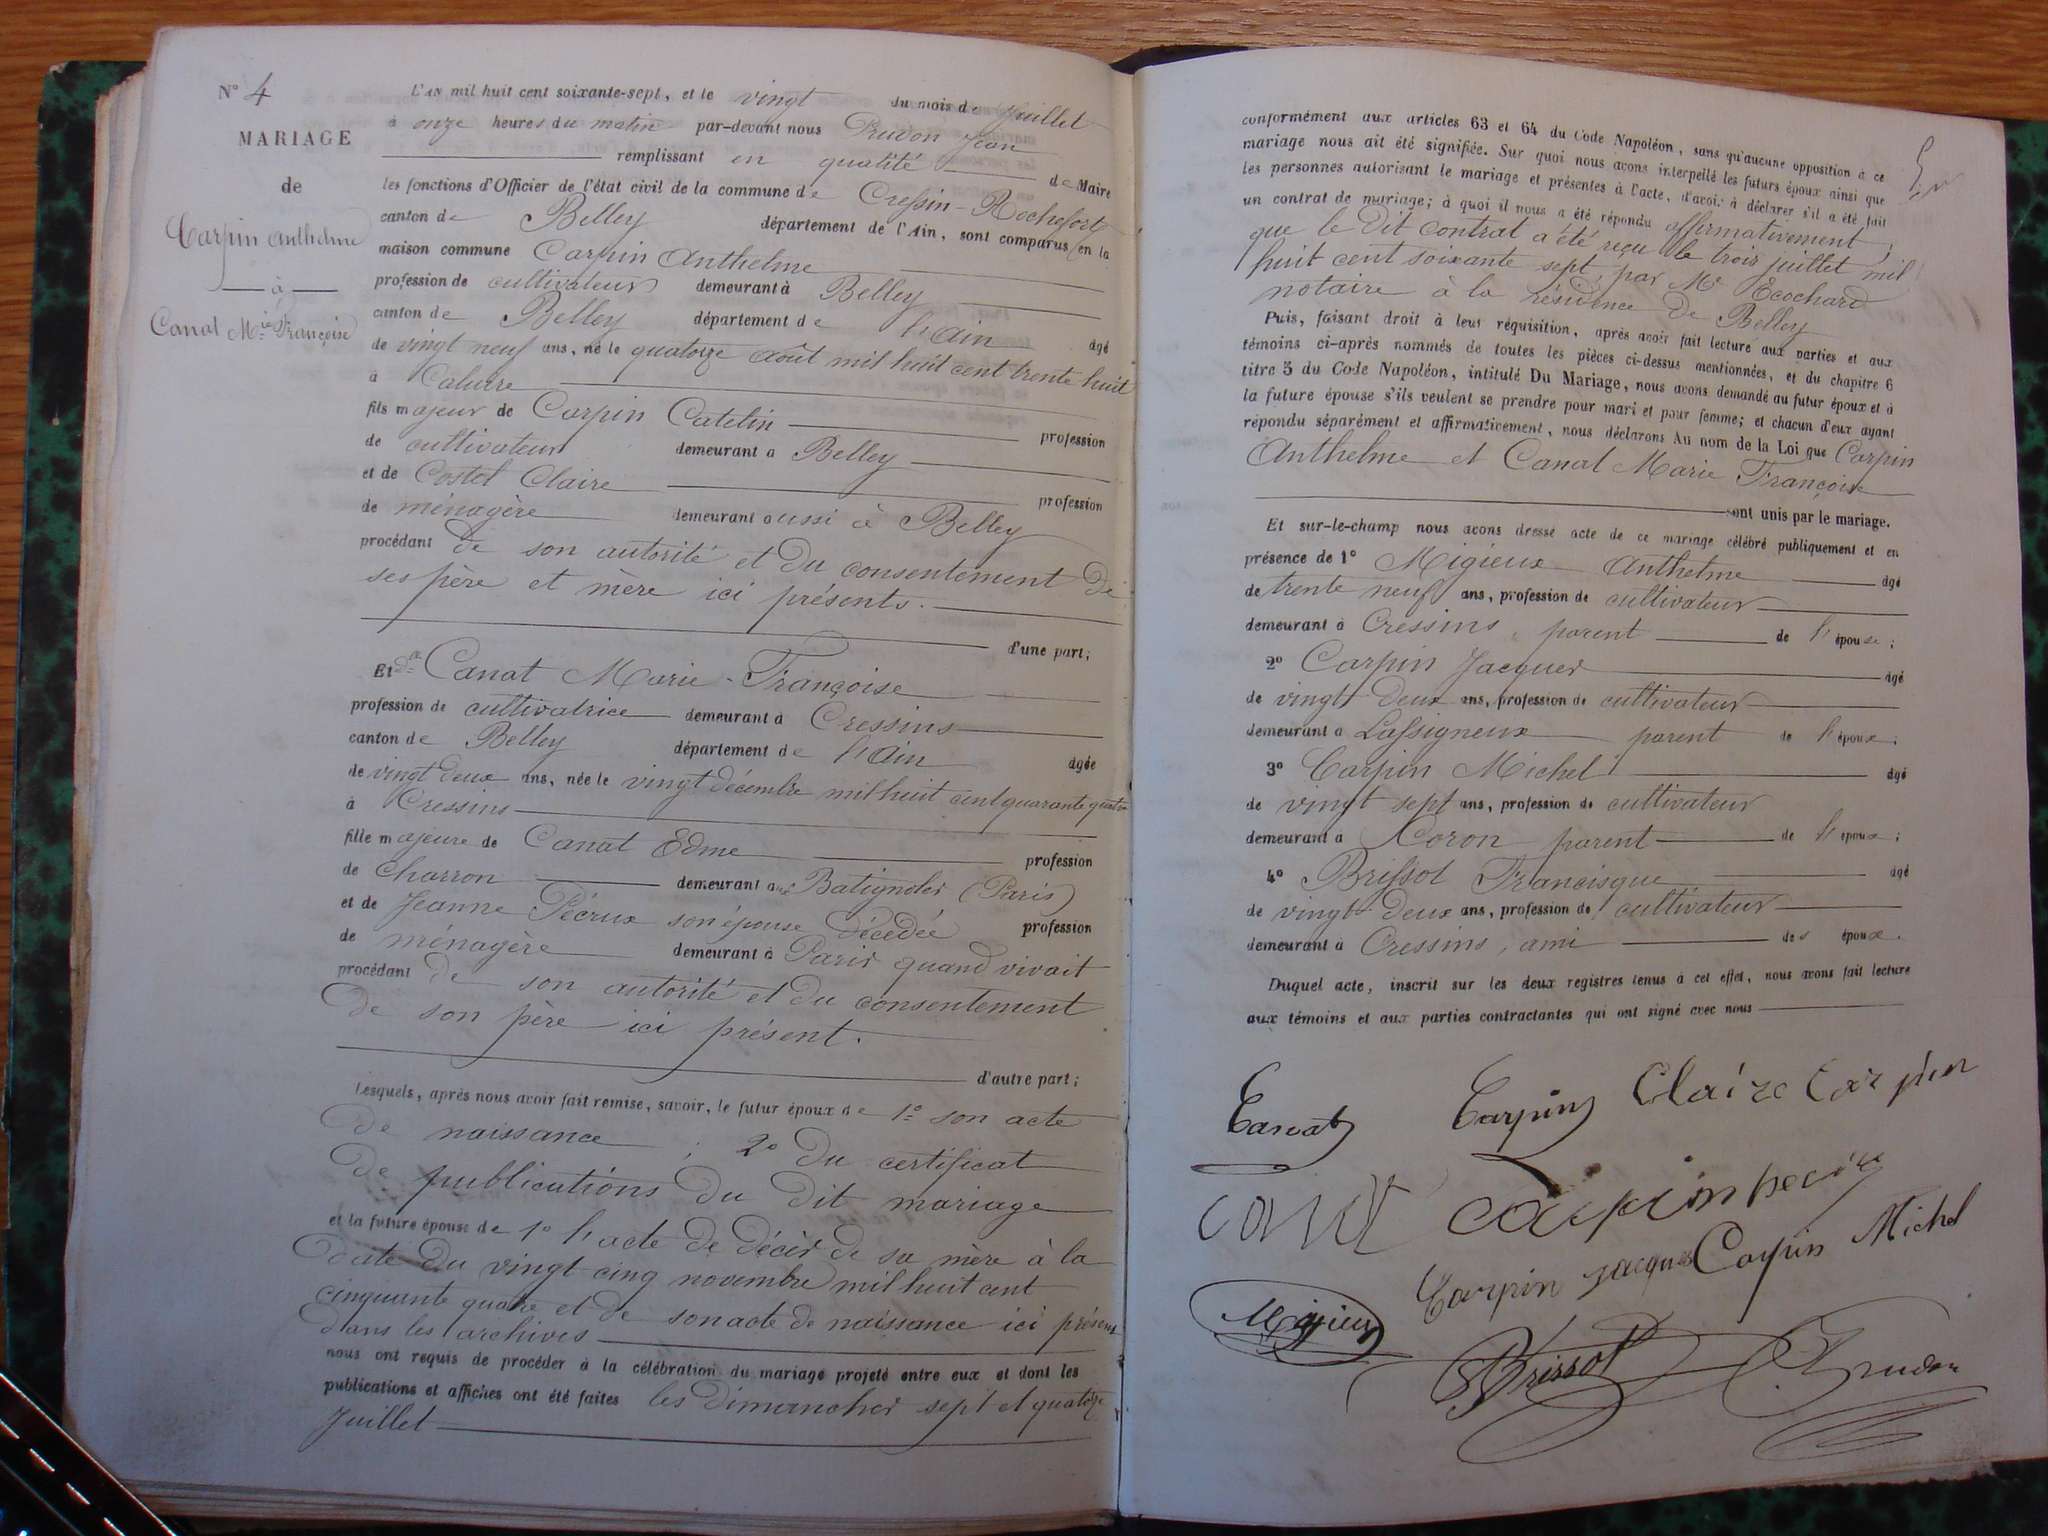 N° 4
MARIAGE
de
Carpin Anthelme
à
Canat Mie Françoise
L'AN mil huit cent soixante-sept, et le vingt du mois de Juillet
à onze heures du matin par-devant nous Prudon Jean
remplissant en qualité de Maire
les fonctions d'Officier de l'état civil de la commune de Cressin-Rochefort
canton de Belley département de l'Ain, sont comparus en la
maison commune Carpin Anthelme
profession de cultivateur demeurant à Belley
canton de Belley département de l'Ain âgé
de vingt neuf ans, né le quatorze août mil huit cent trente huit
à Caluire
fils majeur de Carpin Catelin profession
de cultivateur demeurant à Belley
et de Costel Claire profession
de ménagère demeurant aussi à Belley
procédant de son autorité et du consentement de
ses père et mère ici présents.
d'une part;
Et Canat Marie-Françoise
profession de cultivatrice demeurant à Cressins
canton de Belley département de l'Ain âgée
de vingt deux ans, née le vingt décembre mil huit cent quarante quatre
à Cressins
fille majeure de Canat Edme profession
de charron demeurant aux Batignoles (Paris)
et de Jeanne Pécrux son épouse décédée profession
de ménagère demeurant à Paris quand vivait
procédant de son autorité et du consentement
de son père ici présent.
d'autre part;
Lesquels, après nous avoir fait remise, savoir, le futur époux de 1° son acte
de naissance ; 2° du certificat
de publications du dit mariage
et la future épouse de 1° l'acte de décès de sa mère à la
date du vingt cinq novembre mil huit cent
cinquante quatre et de son acte de naissance ici présent
dans les archives
nous ont requis de procéder à la célébration du mariage projeté entre eux et dont les
publications et affiches ont été faites les dimanches sept et quatorze
Juillet
conformément aux articles 63 et 64 du Code Napoléon, sans qu'aucune opposition à ce
mariage nous ait été signifiée. Sur quoi nous avons interpellé les futurs époux ainsi que
les personnes autorisant le mariage et présentes à l'acte, d'avoir à déclarer s'il a été fait
un contrat de mariage; à quoi il nous a été répondu affirmativement,
que le dit contrat a été reçu le trois juillet mil
huit cent soixante sept, par Me Ecochard
notaire à la résidence de Belley
Puis, faisant droit à leur réquisition, après avoir fait lecture aux parties et aux
témoins ci-après nommés de toutes les pièces ci-dessus mentionnées, et du chapitre 6
titre 5 du Code Napoléon, intitulé Du Mariage, nous avons demandé au futur époux et à
la future épouse s'ils veulent se prendre pour mari et pour femme; et chacun d'eux ayant
répondu séparément et affirmativement, nous déclarons Au nom de la Loi que Carpin
Anthelme et Canat Marie Françoise
sont unis par le mariage.
Et sur-le-champ nous avons dressé acte de ce mariage célébré publiquement et en
présence de 1° Migieux Anthelme âgé
de trente neuf ans, profession de cultivateur
demeurant à Cressins parent de l'épouse;
2° Carpin Jacques âgé
de vingt deux ans, profession de cultivateur
demeurant à Lassigneux parent de l'époux;
3° Carpin Michel âgé
de vingt sept ans, profession de cultivateur
demeurant à Coron parent de l'époux;
4° Brissot Francisque âgé
de vingt deux ans, profession de cultivateur
demeurant à Cressins, ami des époux.
Duquel acte, inscrit sur les deux registres tenus à cet effet, nous avons fait lecture
aux témoins et aux parties contractantes qui ont signé avec nous
Canat Carpin Claire Carpin
canat carpin
Carpin jacques Carpin Michel
Migieux
Brissot Prudon